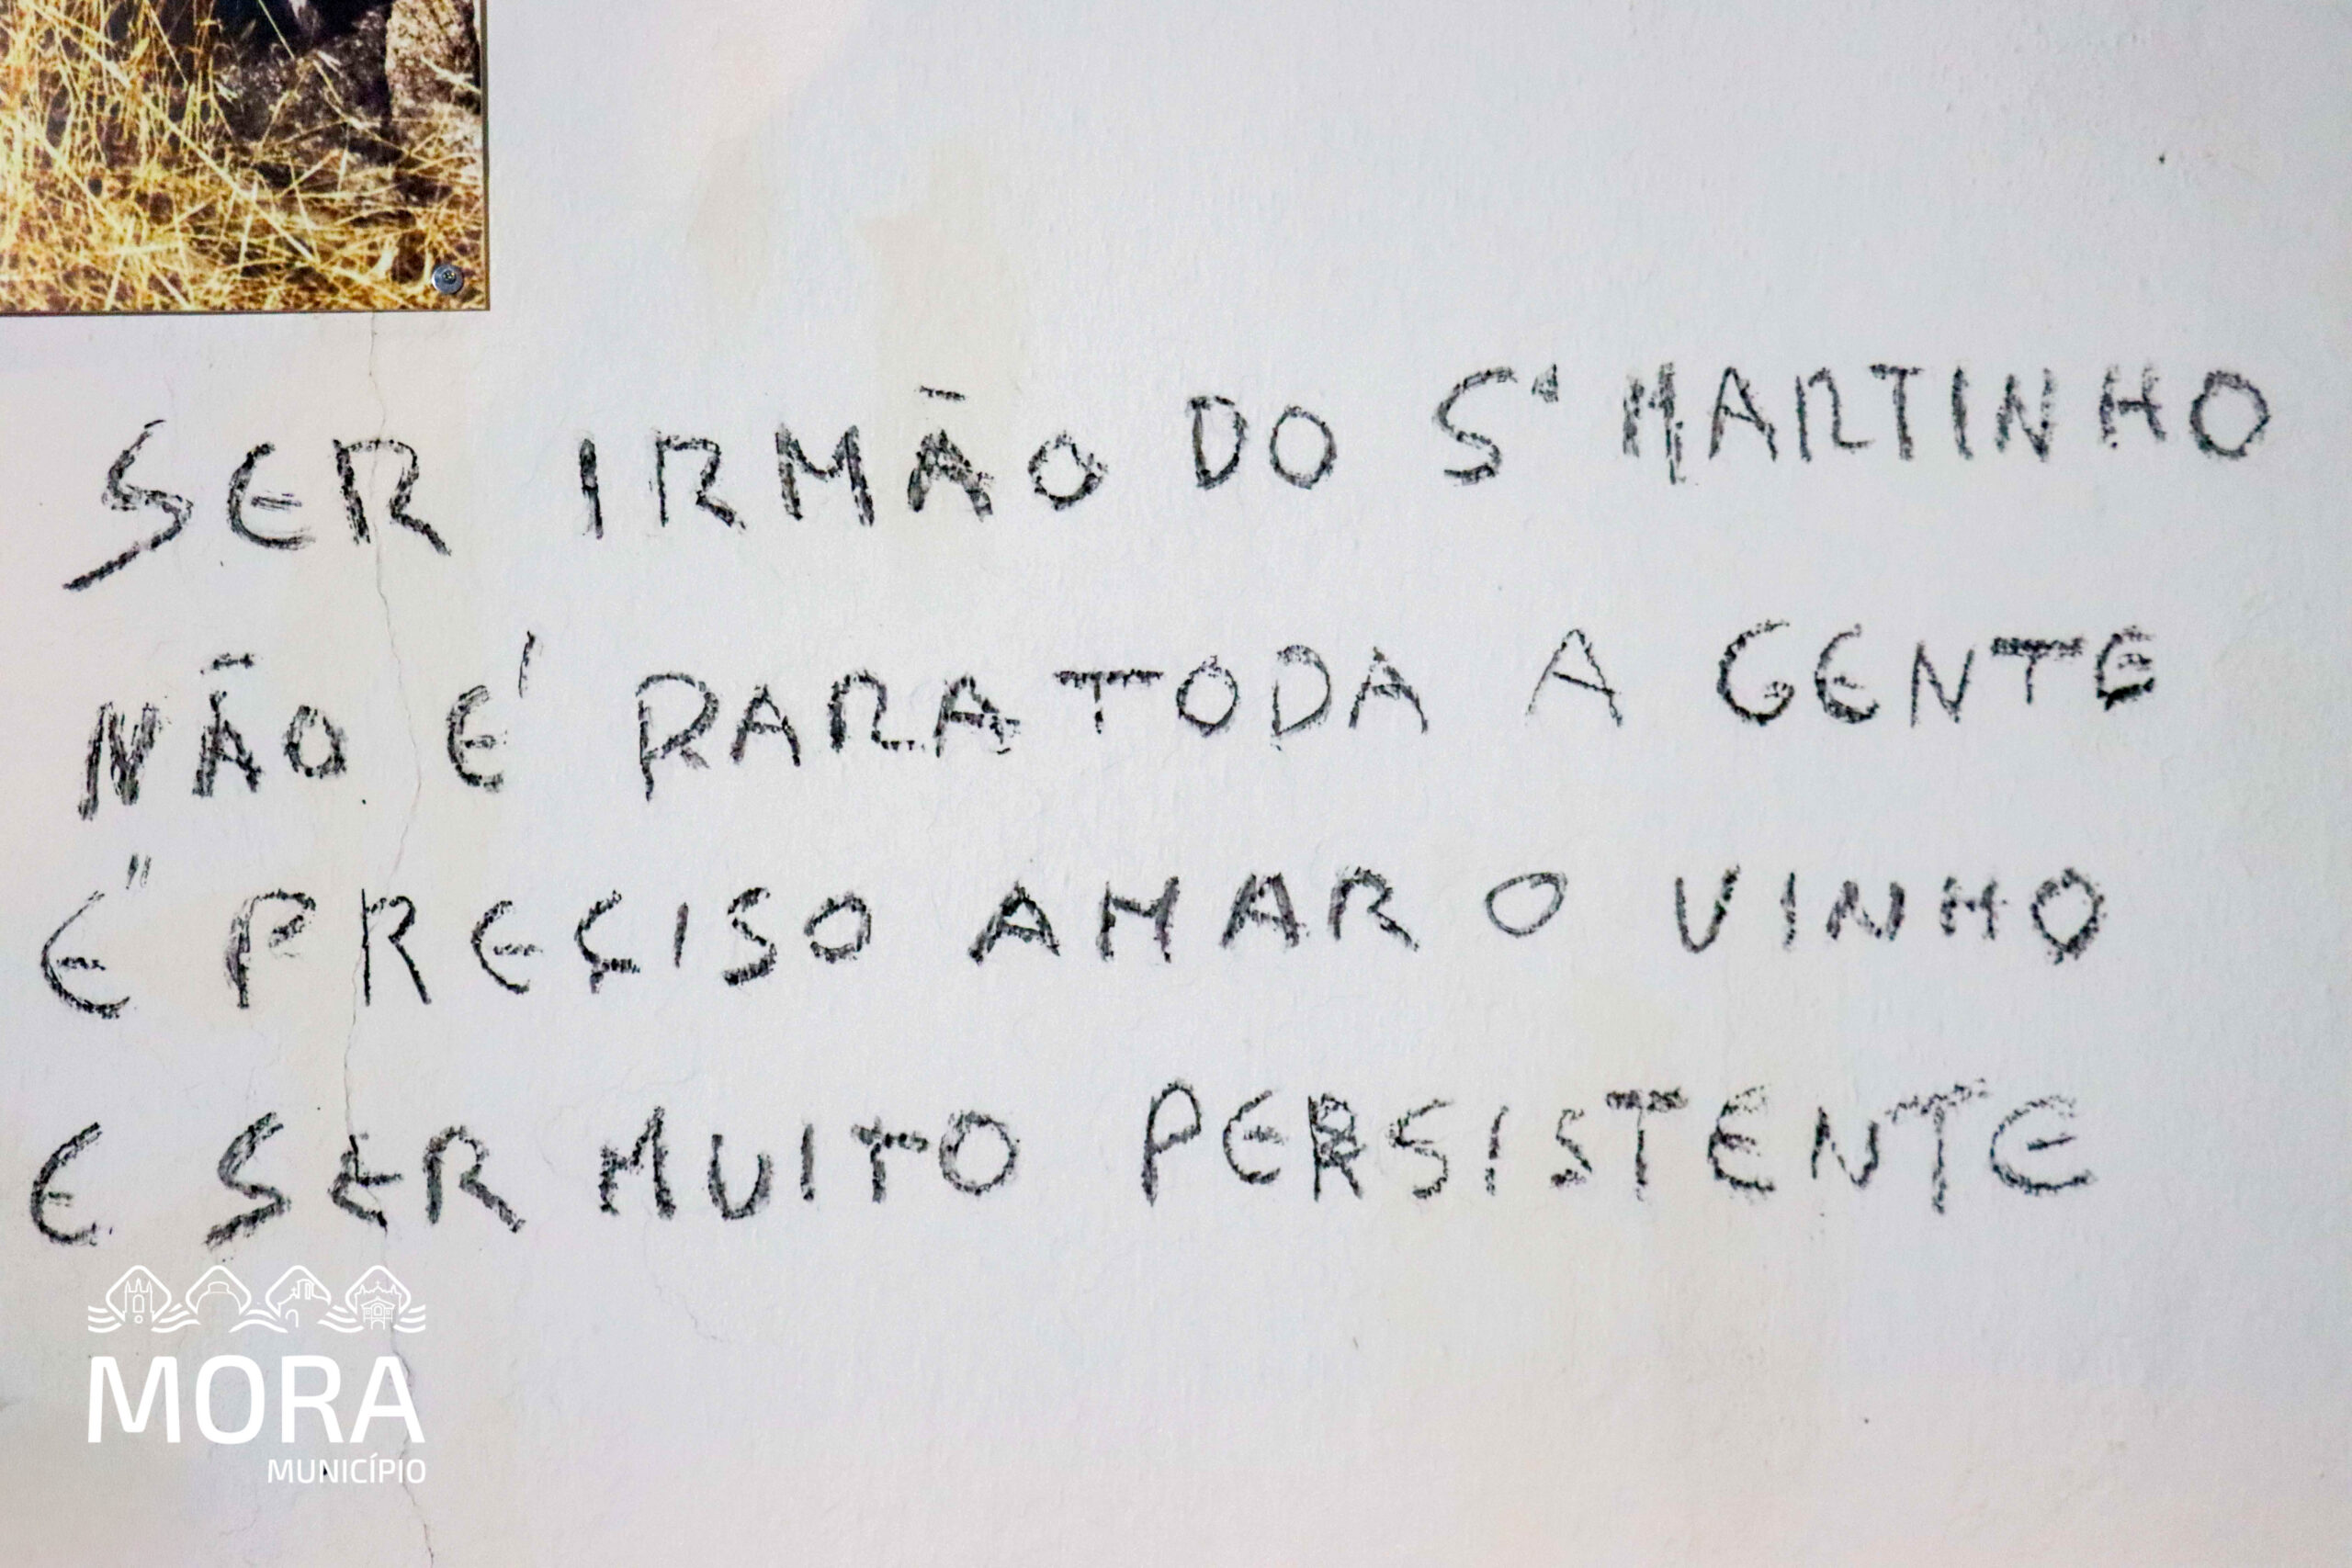 SER IRMÃO DO Sº MARTINHO
NÃO É PARA TODA A GENTE
É PREÇISO AMAR O VINHO
E SER MUITO PERSISTENTE
MORA
MUNICÍPIO